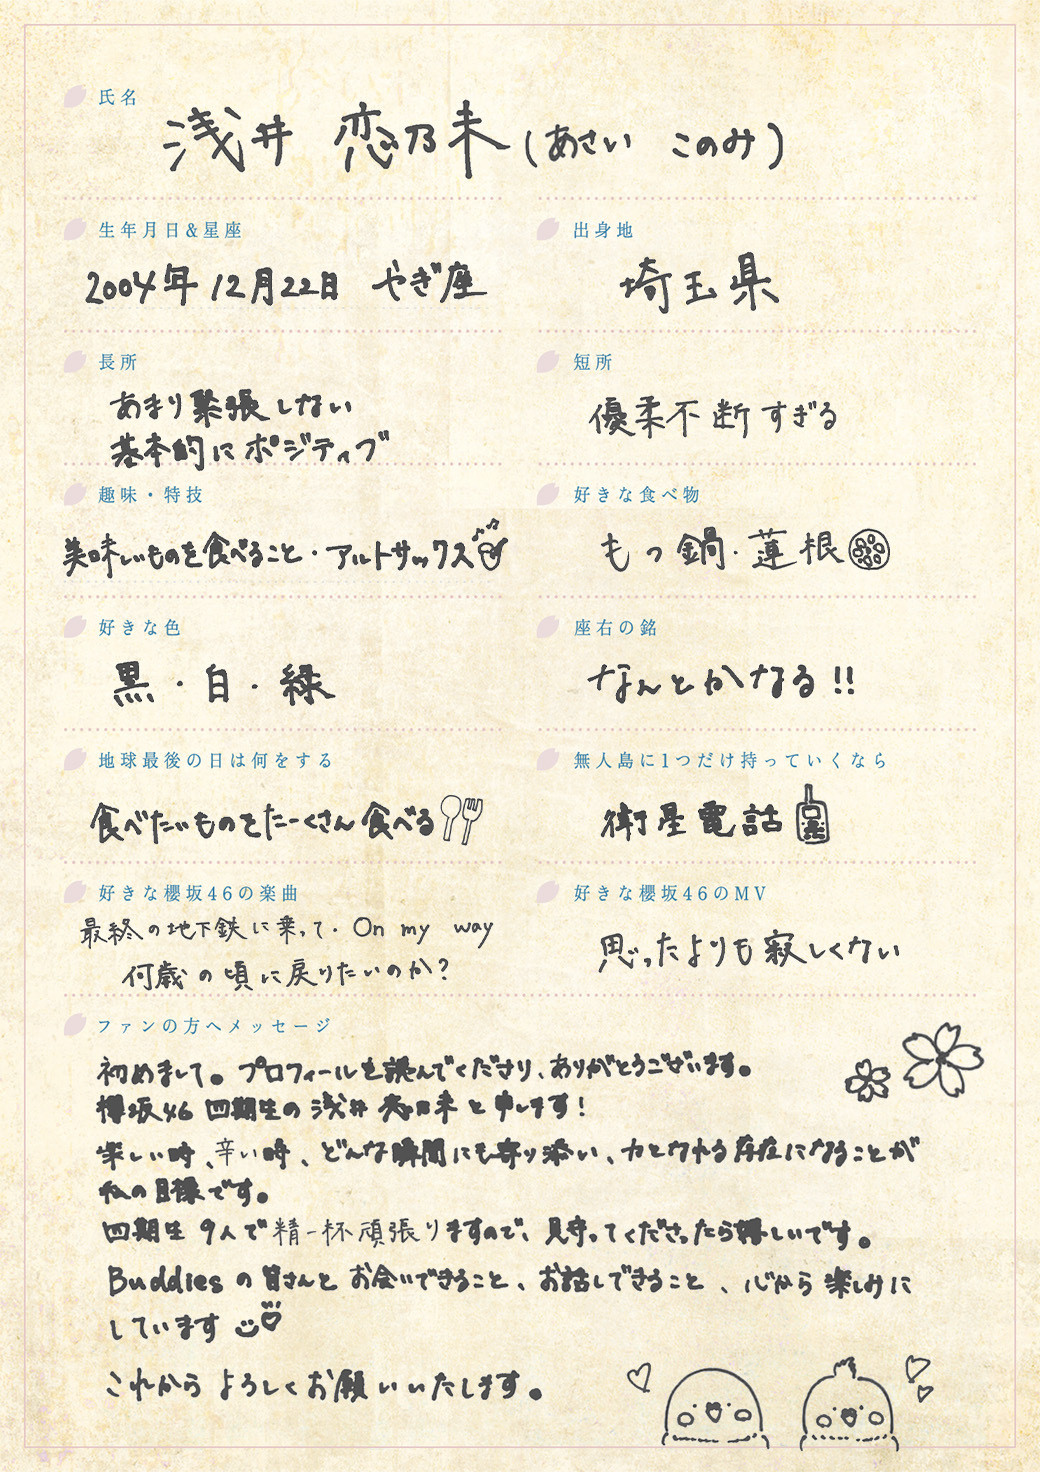 氏名
浅井 恋乃未(あさい このみ)
生年月日&星座
2004年 12月22日 やぎ座
出身地
埼玉県
長所
あまり緊張しない
基本的にポジティブ
短所
優柔不断すぎる
趣味・特技
美味しいものを食べること・アルトサックス
好きな食べ物
もつ鍋・蓮根
好きな色
黒・白・緑
座右の銘
なんとかなる!!
地球最後の日は何をする
食べたいものをたーくさん食べる
無人島に1つだけ持っていくなら
衛星電話
好きな櫻坂46の楽曲
最終の地下鉄に乗って・On my way
何歳の頃に戻りたいのか?
好きな櫻坂46のMV
思ったよりも寂しくない
ファンの方へメッセージ
初めまして。プロフィールを読んでくださり、ありがとうございます。
櫻坂46 四期生の 浅井 恋乃未 と申します!
楽しい時、辛い時、どんな瞬間にも寄り添い、力となれる存在になることが
私の目標です。
四期生 9人で精一杯頑張りますので、見守ってくださったら嬉しいです。
Buddies の皆さんと お会いできること、お話しできること、心から楽しみに
しています
これから よろしくお願いいたします。